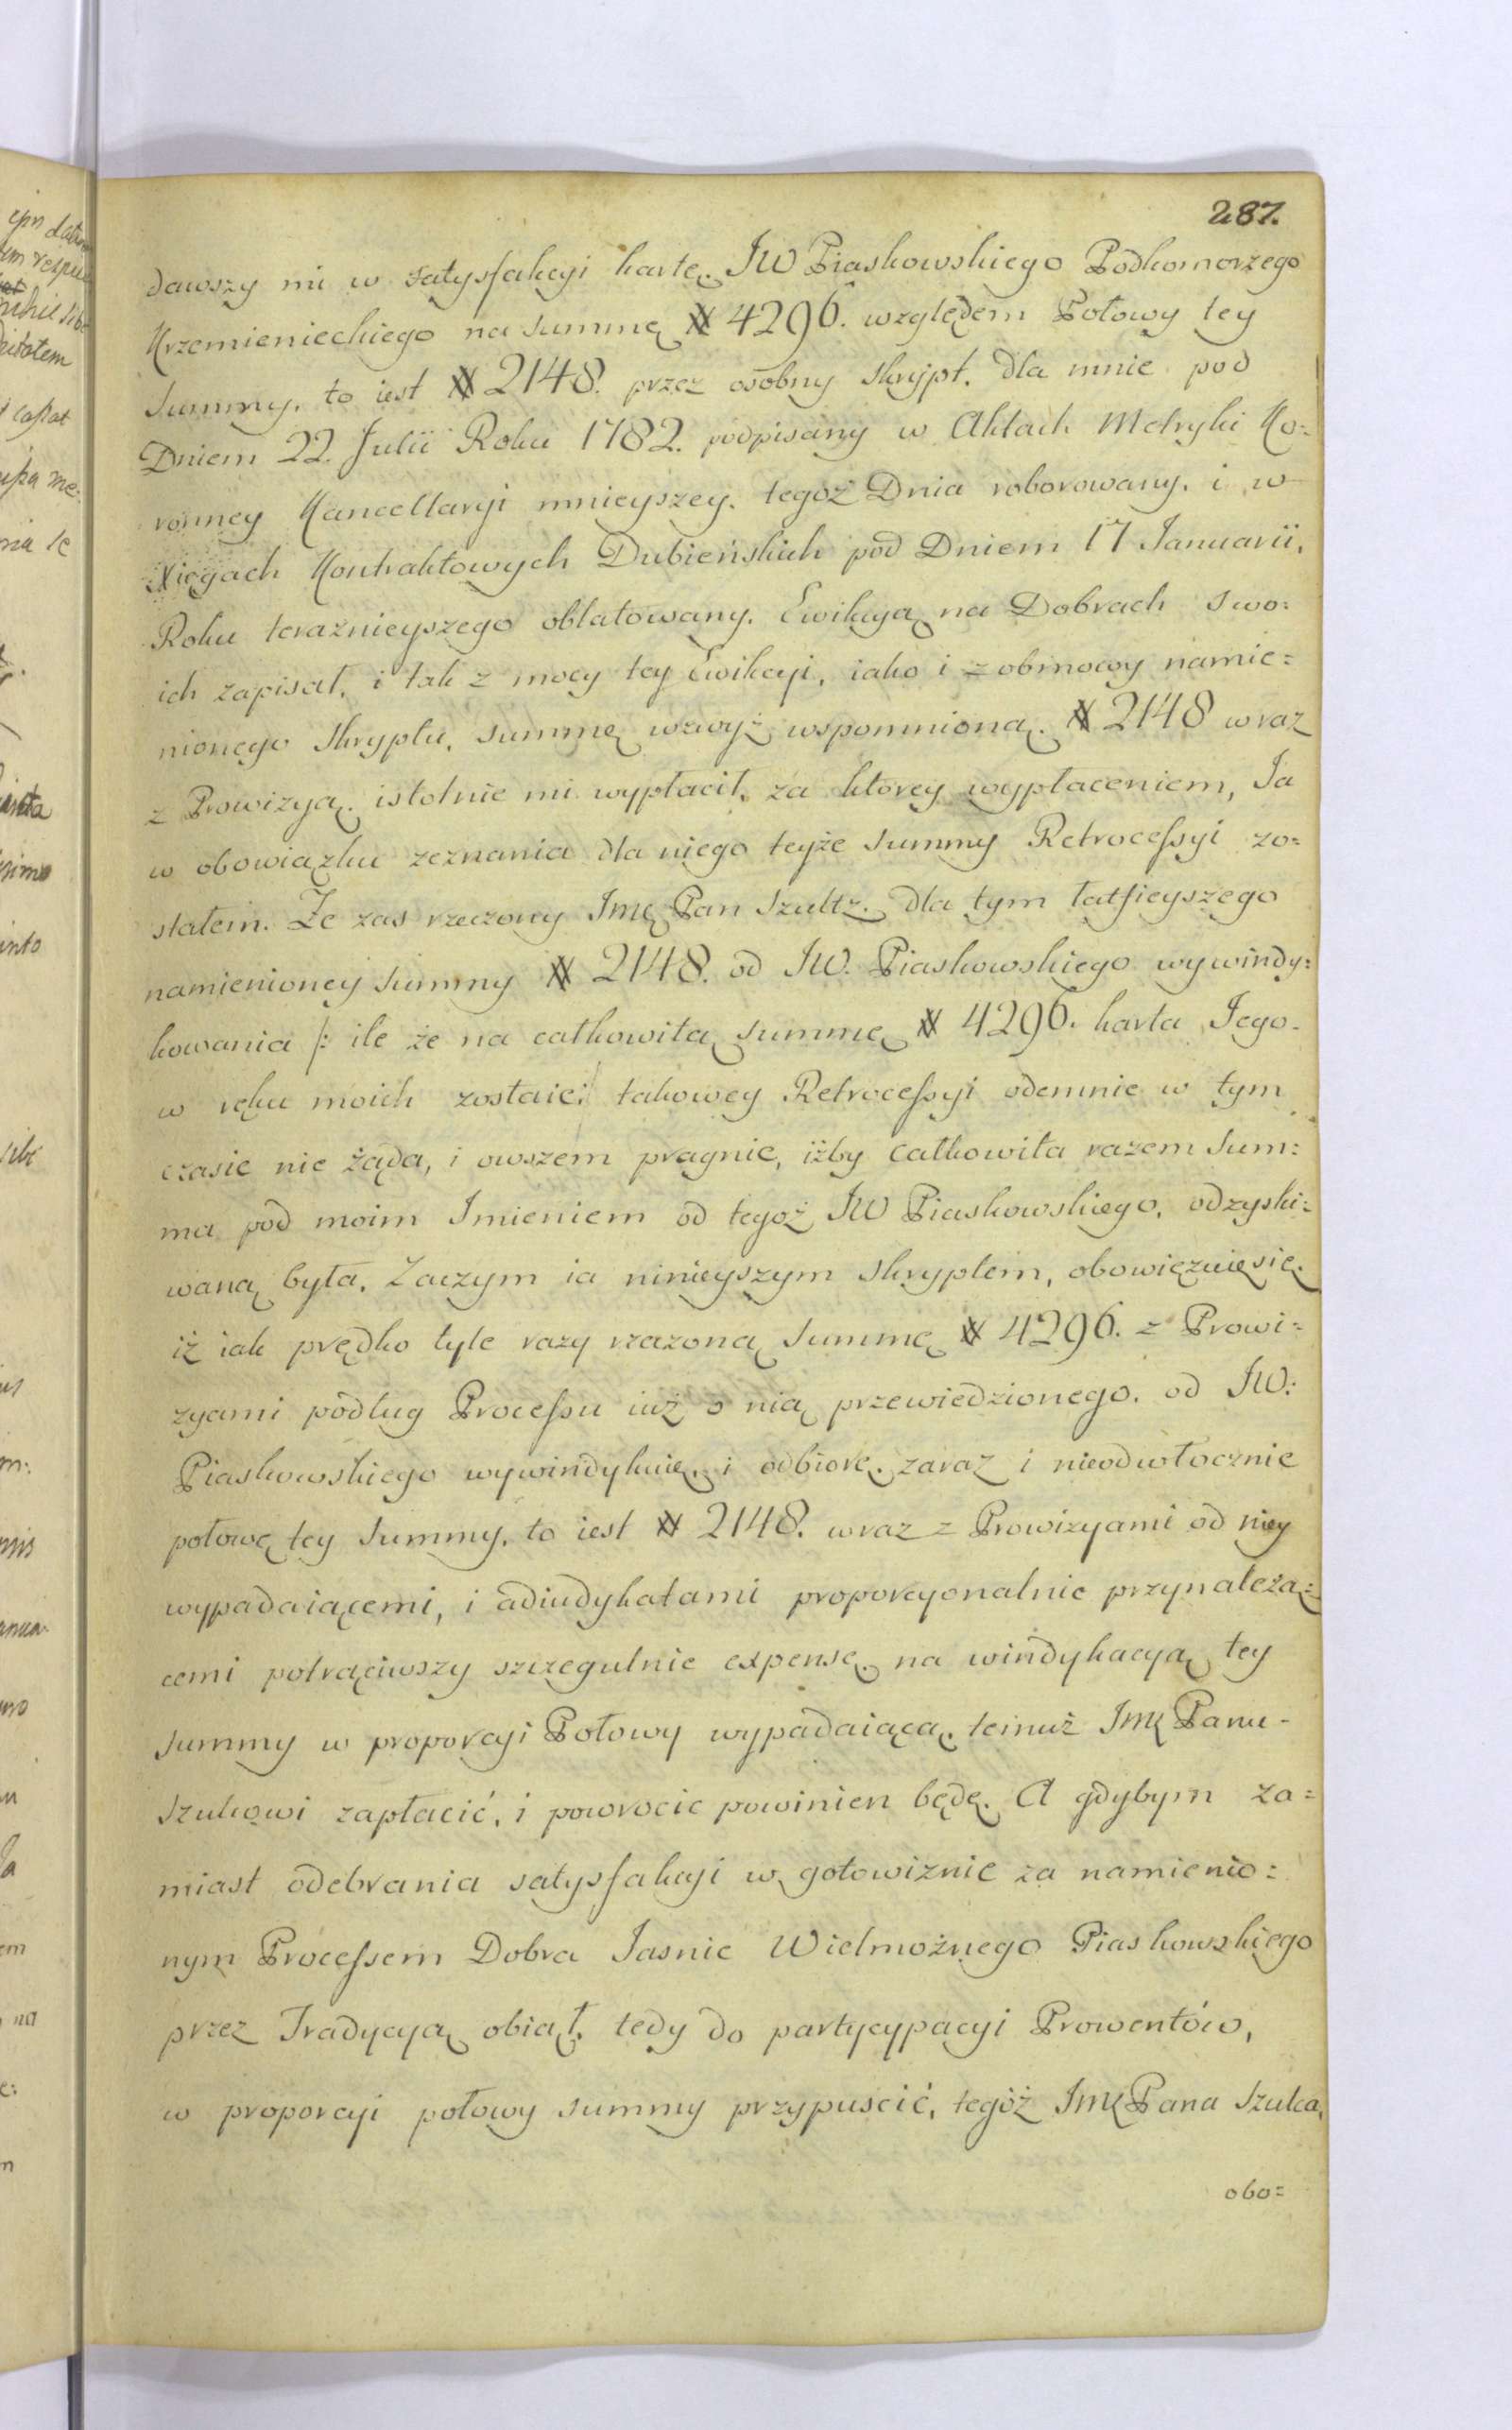 287.
dawszy mi w satysfakcyi kartę JW Piaskowskiego Podkomorzego
Krzemienieckiego na summę # 4296. względem Połowy tey
summy, to iest # 2148. przez osobny skrypt, dla mnie pod
Dniem 22. Julii Roku 1782. podpisany w Aktach Metryki Ko=
ronney Kancellaryi mnieyszey, tegoż Dnia roborowany, i w
Xięgach Kontraktowych Dubieńskich pod Dniem 17 Januarii,
Roku teraźnieyszego oblatowany. Ewikcyą na Dobrach swo=
ich zapisał, i tak z mocy tey Ewikcyi, iako i z obmowy namie=
nionego Skryptu, summę wzwyż wspomnioną # 2148 wraz
z Prowizyą istotnie mi wypłacił, za ktorey wypłaceniem, Ja
w obowiązku zeznania dla niego teyże summy Retrocessyi zo=
stałem. Ze zas rzeczony Jmę Pan Szultz, dla tym łatfieyszego
namienioney summy # 2148. od JW. Piaskowskiego wywindy=
kowania /: ile że na całkowitą summę # 4296. karta Jego
w ręku moich zostaie:/ takowey Retrocessyi odemnie w tym
czasie nie żąda, i owszem pragnie, iżby całkowita razem Sum=
ma pod moim Imieniem od tegoż JW Piaskowskiego, odzyski=
waną była. Zaczym ia ninieyszym skryptem, obowięzuię się
iż iak prędko tyle razy rzezoną Summę # 4296. z Prowi=
zyami podług Processu iuż o nią przewiedzionego, od JW:
Piaskowskiego wywindykuię, i odbiorę, zaraz i nieodwłocznie
połowę tey Summy, to iest # 2148. wraz z Prowizyami od niey
wypadaiącemi, i adiudykatami proporcyonalnie przynależą=
cemi potrąciwszy szczegulnie expensę na windykacyą tey
summy w proporcyi Połowy wypadaiącą, temuż Jmę Panu
Szulcowi zapłacić, i powrocic powinien będę. A gdybym za=
miast odebrania satysfakcyi w gotowiznie za namienio=
nym Processem Dobra Jasnie Wielmożnego Piaskowskiego
przez Tradycyą obiął, tedy do partycypacyi Prowentów,
w proporcyi połowy summy przypuscić, tegoż Jmę Pana Szulca,
obo=